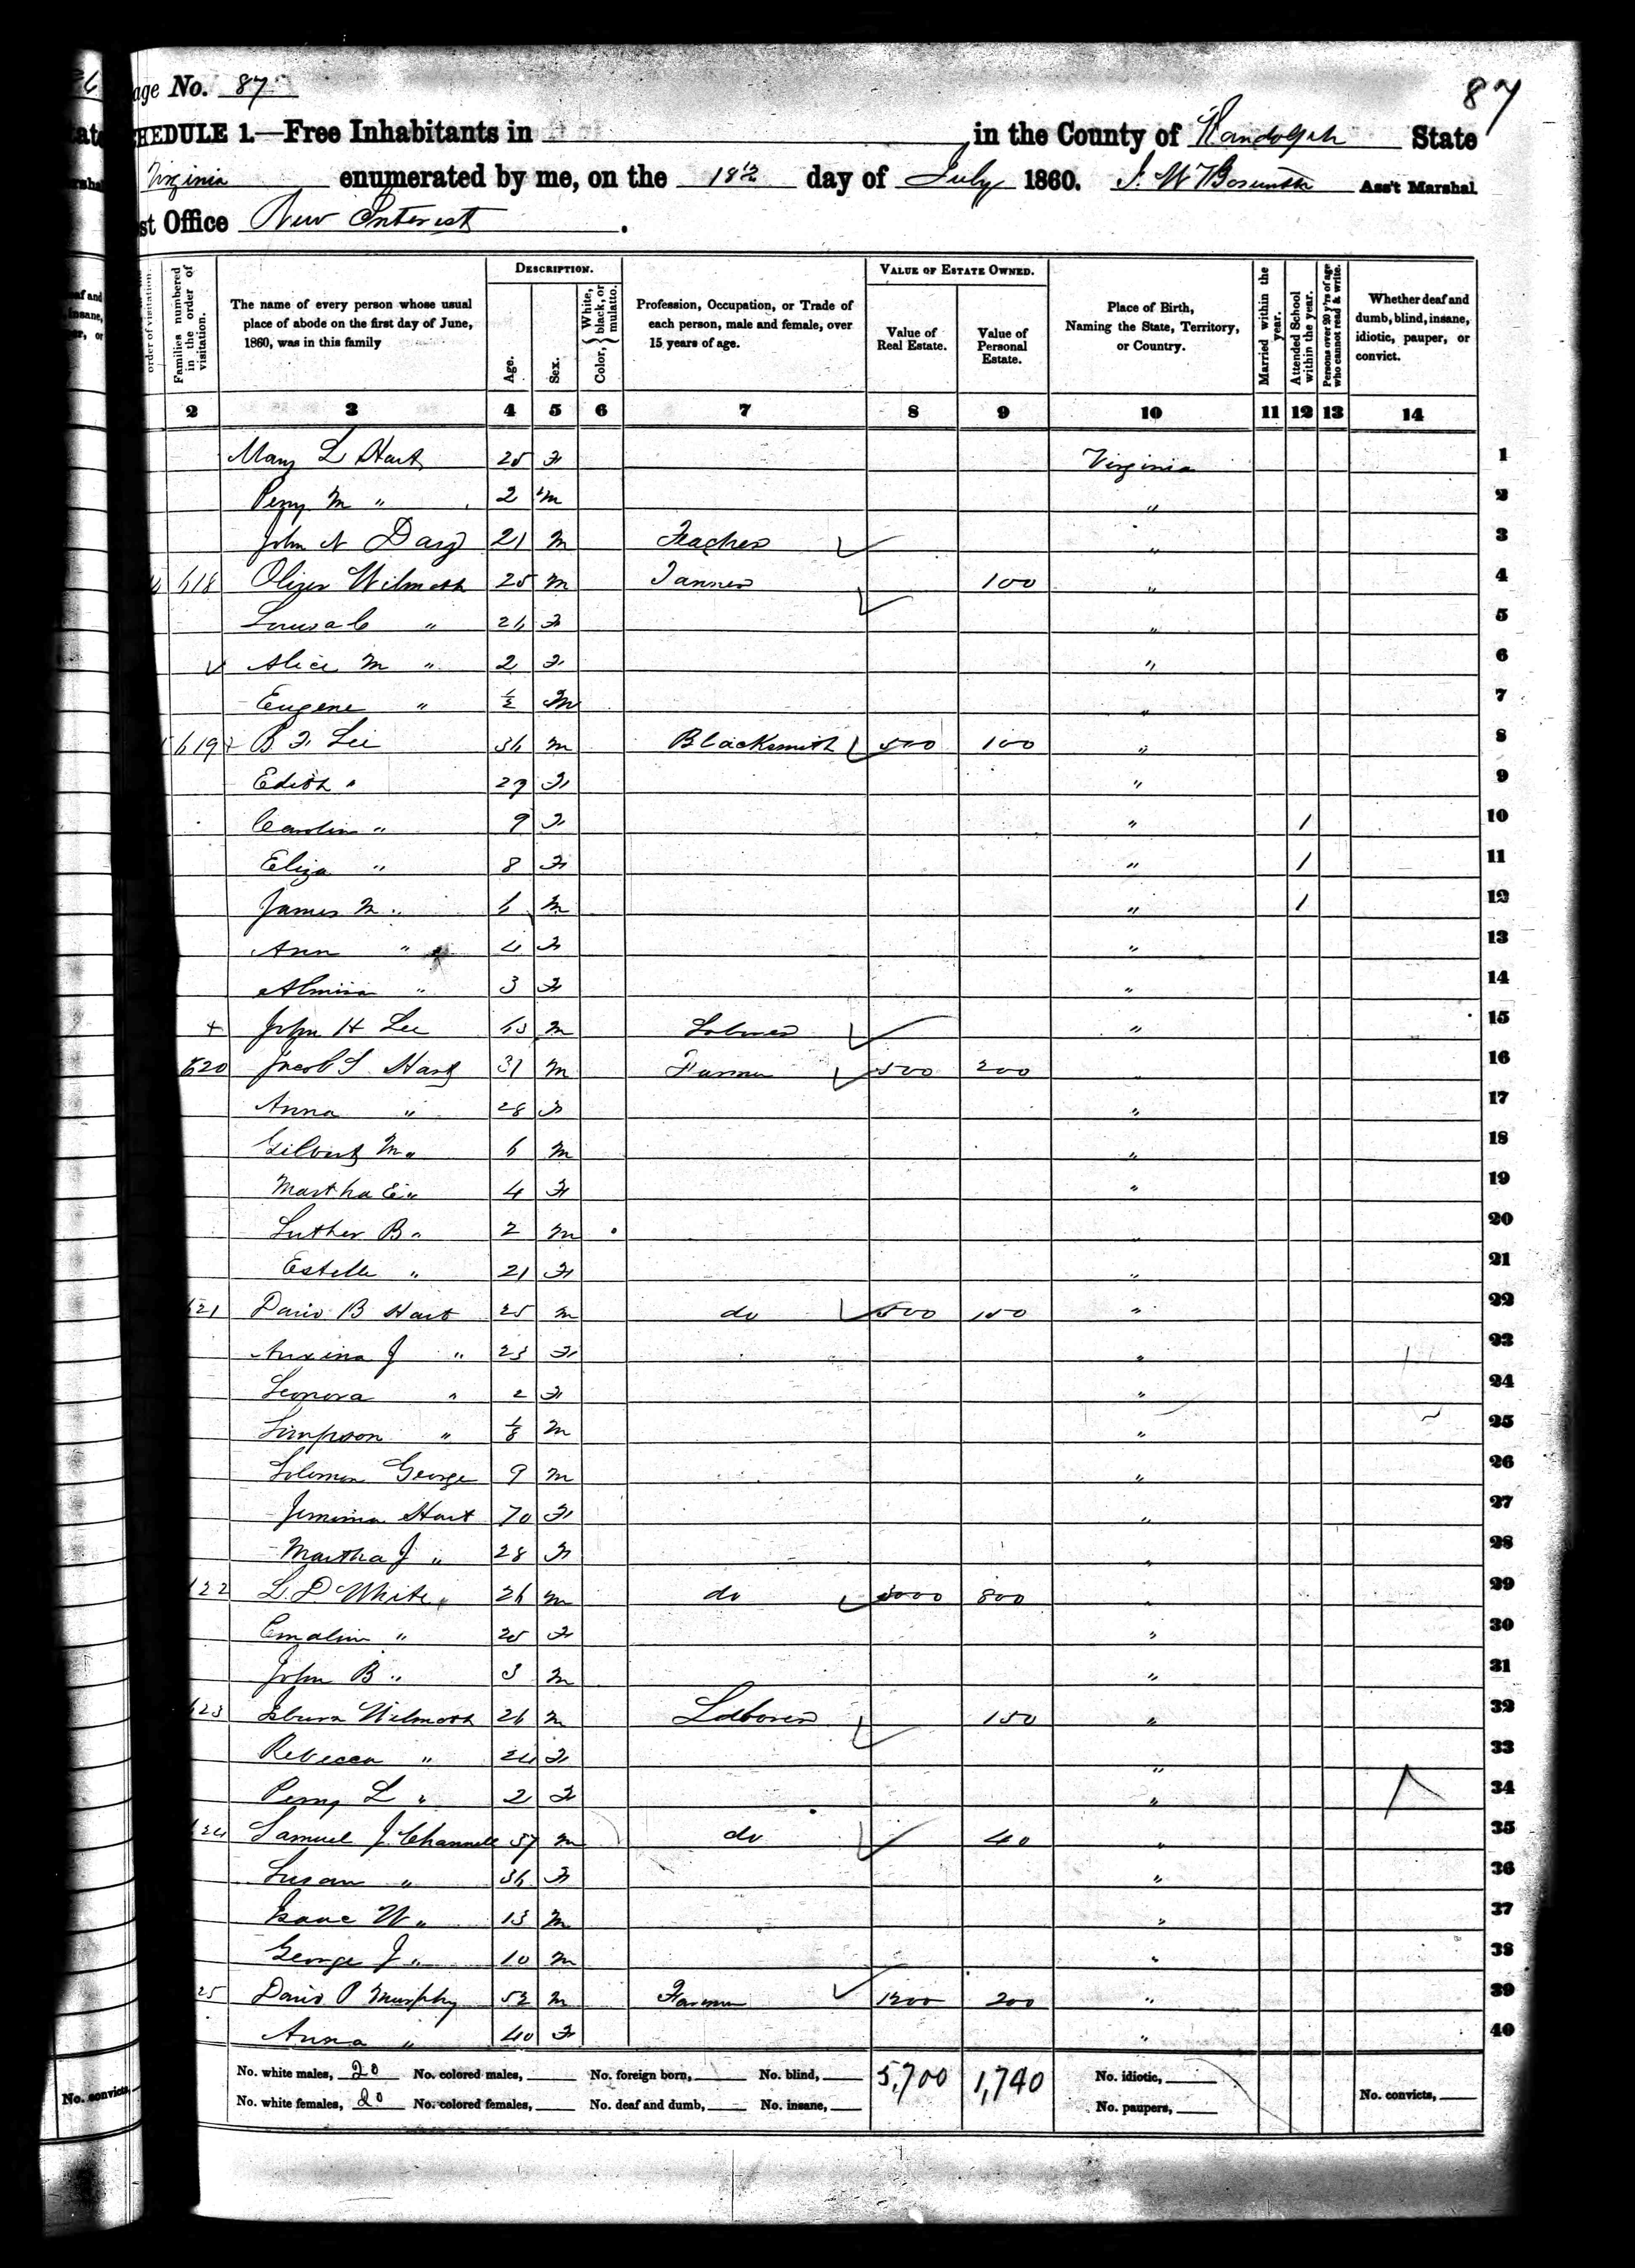 age No. 87
87
HEDULE 1.—Free Inhabitants in in the County of Randolph State
Virginia enumerated by me, on the 18th day of July 1860. Ass't Marshal
st Office New Interest.
order of visitation.
Families numbered in the order of visitation.
The name of every person whose usual place of abode on the first day of June, 1860, was in this family
Description.
Age.
Sex.
Color, { White, black, or mulatto.
Profession, Occupation, or Trade of each person, male and female, over 15 years of age.
Value of Estate Owned.
Value of Real Estate.
Value of Personal Estate.
Place of Birth, Naming the State, Territory, or Country.
Married within the year.
Attended School within the year.
Persons over 20 y'rs of age who cannot read & write.
Whether deaf and dumb, blind, insane, idiotic, pauper, or convict.
2 3 4 5 6 7 8 9 10 11 12 13 14
Mary L Hart 25 F Virginia 1
Perry M " 2 M " 2
John N 21 M Teacher " 3
618 Oliver Wilmoth 25 M Tanner 100 " 4
Louisa C " 26 F " 5
Alice M " 2 F " 6
Eugene " ½ M " 7
619 B F Lee 36 M Blacksmith 500 100 " 8
Edith " 29 F " 9
Caroline " 9 F " 1 10
Eliza " 8 F " 1 11
James M " 6 M " 1 12
Ann " 4 F " 13
Almira " 3 F " 14
John H Lee 63 M Laborer " 15
620 Jacob S Hart 31 M Farmer 500 200 " 16
Anna " 28 F " 17
Gilbert M " 6 M " 18
Martha E " 4 F " 19
Luther B " 2 M " 20
Estelle " 21 F " 21
621 David B Hart 25 M do 500 150 " 22
J " 23 F " 23
Leonora " 2 F " 24
Simpson " M " 25
Solomon George 9 M " 26
Jemima Hart 70 F " 27
Martha J " 28 F " 28
622 L. D White 26 M do 3000 800 " 29
Emaline " 25 F " 30
John B " 3 M " 31
623 Wilmoth 26 M Laborer 150 " 32
Rebecca " 24 F " 33
Perry L " 2 F " 34
624 Samuel J. Channell 37 M do 40 " 35
Susan " 36 F " 36
Isaac W " 13 M " 37
George J " 10 M " 38
25 David P Murphy 52 M Farmer 1200 200 " 39
Anna " 40 F " 40
No. white males, 20 No. colored males, No. foreign born, No. blind, 5,700 1,740 No. idiotic, No. convicts,
No. white females, 20 No. colored females, No. deaf and dumb, No. insane, No. paupers,
No. convicts,